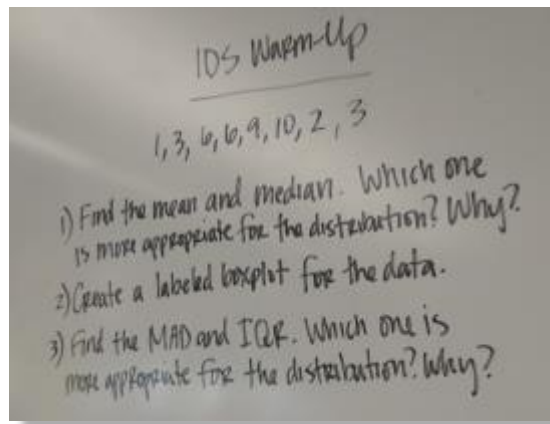 IDS Warm-Up
1, 3, 6, 6, 9, 10, 2, 3
1) Find the mean and median. Which one
is more appropriate for the distribution? Why?
2) Create a labeled boxplot for the data.
3) Find the MAD and IQR. Which one is
more appropriate for the distribution? Why?